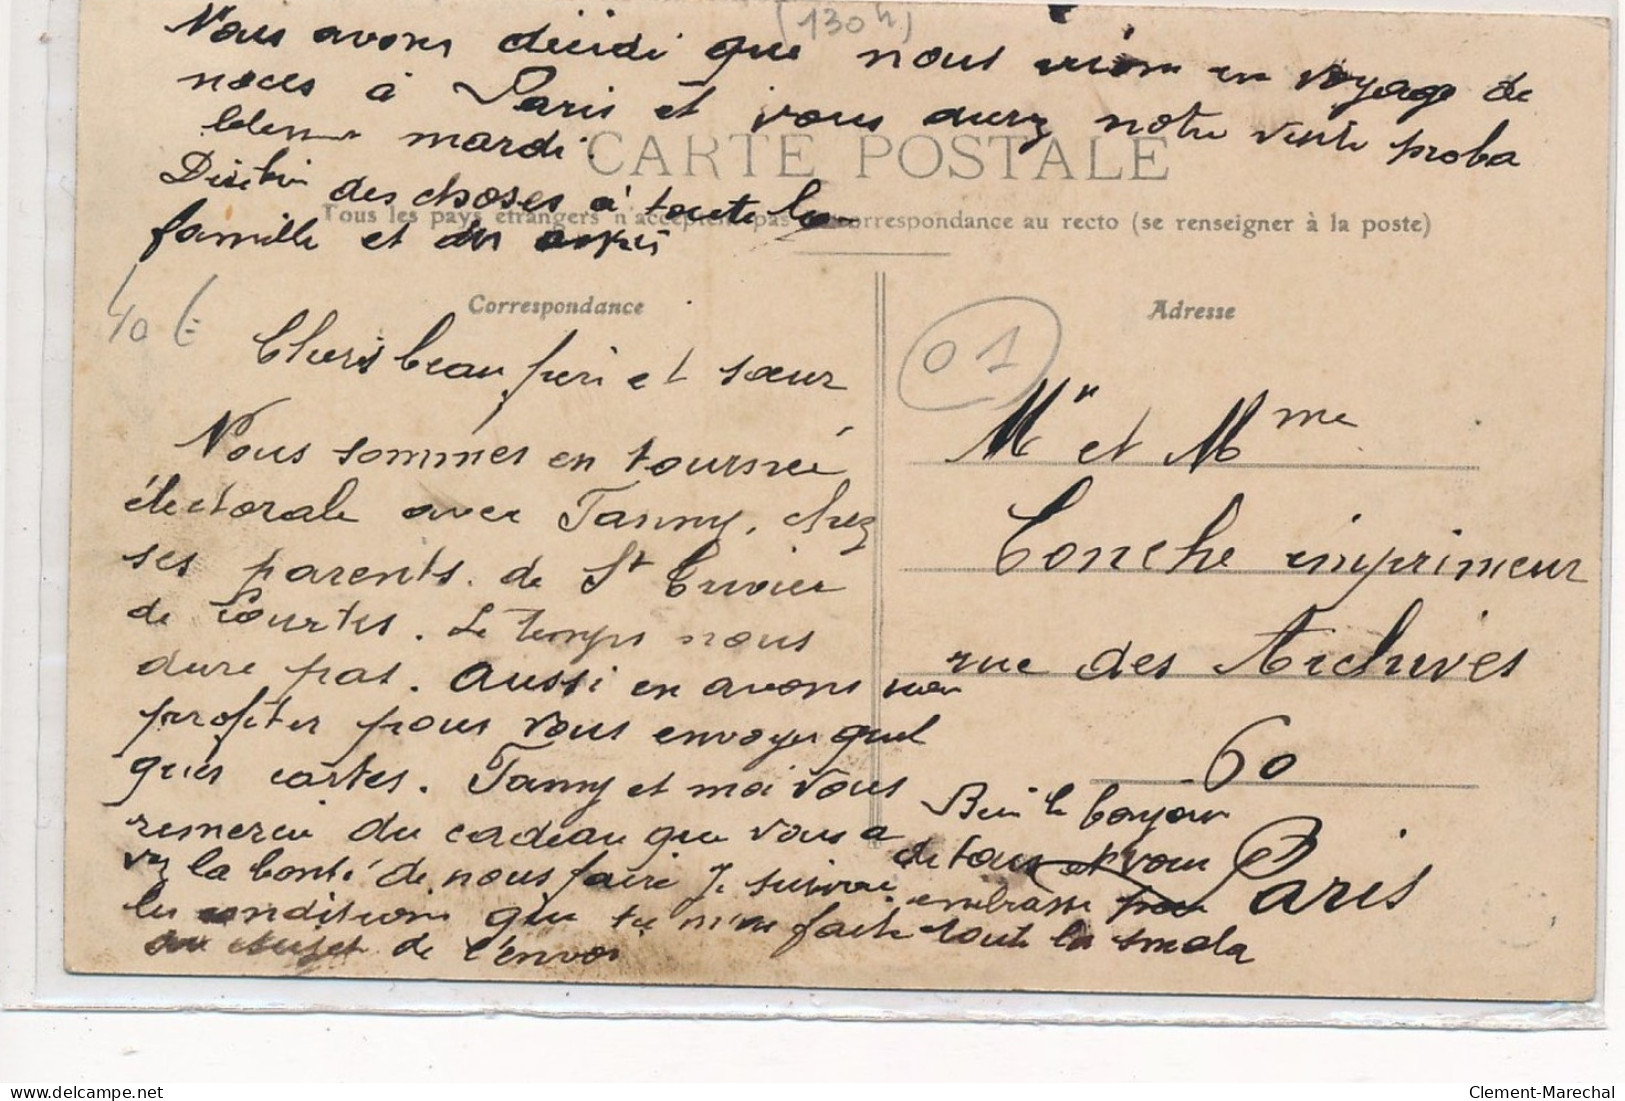 (130h)
Nous avons décidé que nous irions en voyage de
noces à Paris et vous aurez notre visite proba
blement mardi.
CARTE POSTALE
des choses à toute la
Tous les pays étrangers n'acceptent pas la correspondance au recto (se renseigner à la poste)
famille et des
40 €
Correspondance
Chers beau frère et sœur
Nous sommes en tournée
électorale avec Fanny, chez
ses parents de St Cuvier
de Courtes. Le temps nous
dure pas. Aussi en avons
profiter pour vous envoyer quel
ques cartes. Fanny et moi vous
remercie du cadeau que vous a
vez la bonté de nous faire Je suivrai
les conditions que tu m'as faite
au sujet de l'envoi
Adresse
01
Mr et Mme
Conche imprimeur
rue des Archives
60
Paris
Bien le bonjour
de tous et vous
embrasse
toute la smala
Clement-Marechal